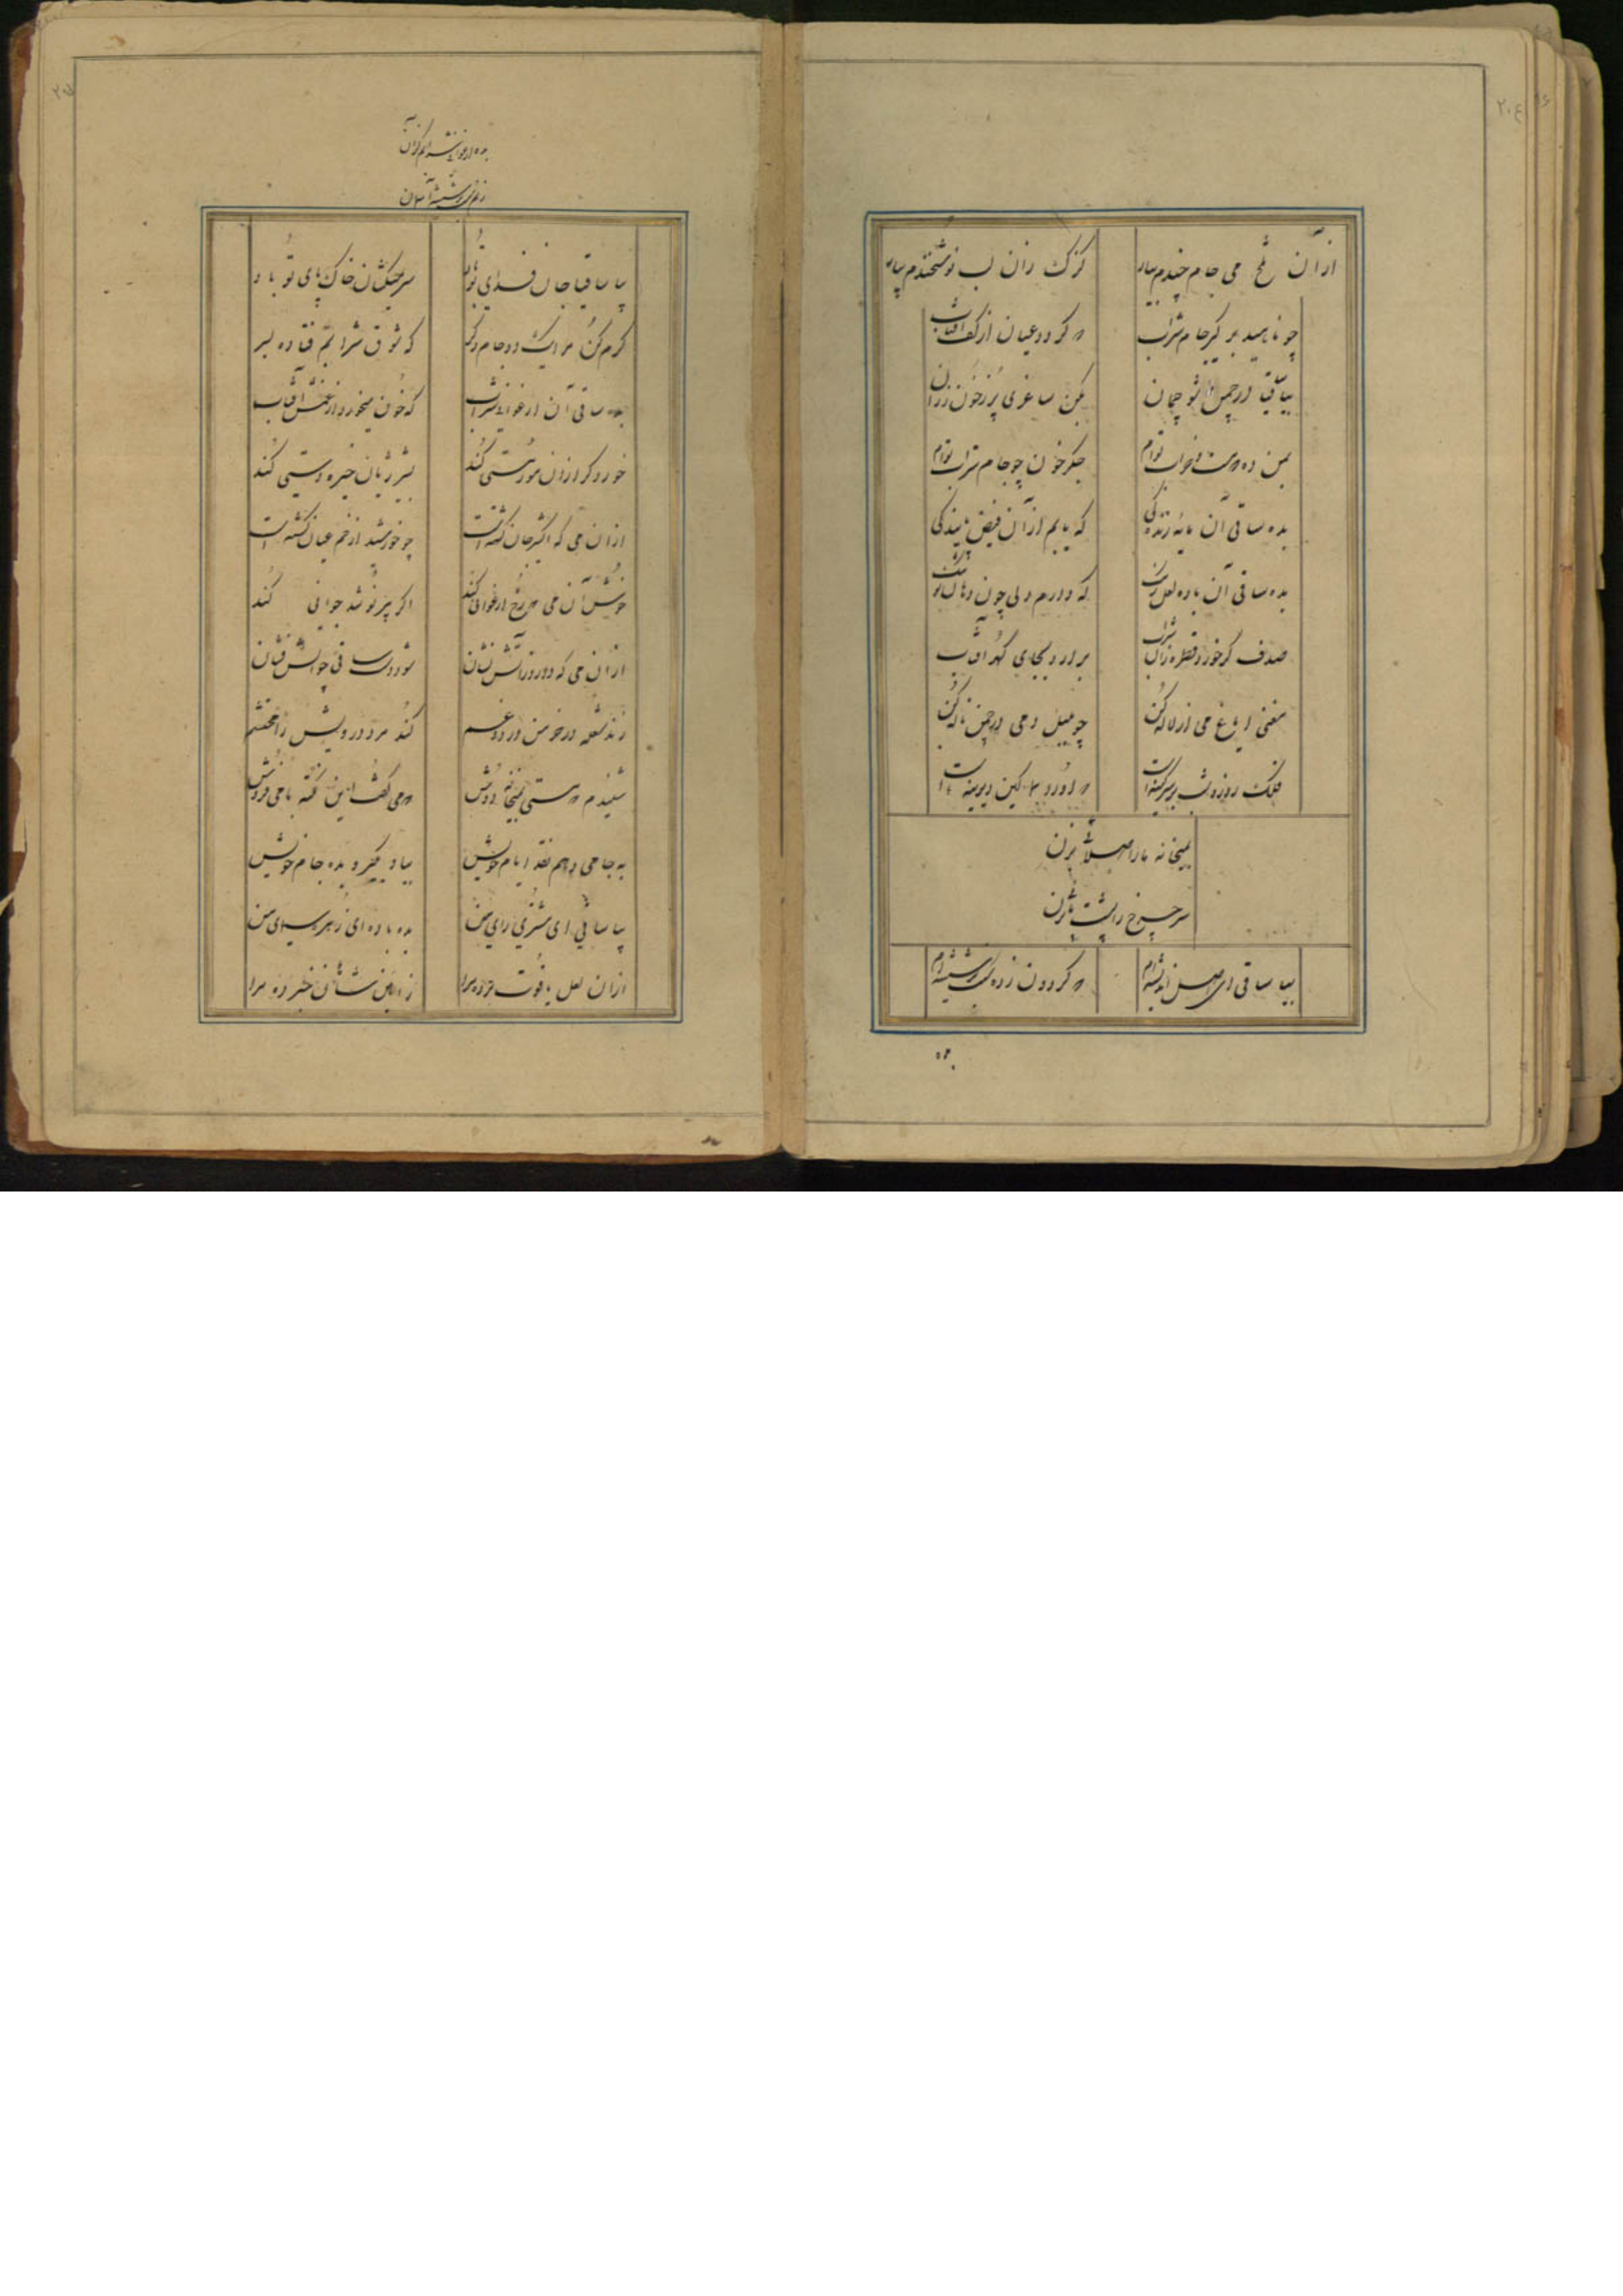 ۲۰۴
از آن تلخ می جام چندم بیار
گزک زان لب نوشخندم بیار
چو ناهید برگیر جام شراب
که گردد عیان از کفت آفتاب
بیا ساقیا در چمن شو چمان
بکن ساغری پر ز خون رزان
بمن ده که مست و خراب توام
جگر خون چو جام شراب توام
بده ساقی آن مایه زندگی
که یابم از آن فیض پایندگی
بده ساقی آن باده لعل رنگ
که دارم دلی چون دهان تو تنگ
صدف گر خورد قطره زان شراب
برآرد بجای گهر آفتاب
مغنی ایاغ می از لاله کن
چو بلبل دمی در چمن ناله کن
فلک روز و شب بر سر کینه است
که او را بما کین دیرینه است
بمیخانه ما را صلائی بزن
سر چرخ را پشت پائی بزن
بیا ساقی ای اصل اندیشه‌ام
که گردون زده سنگ بر شیشه‌ام
بده
بده ارغوانی شرابم کزان
زنم سنگ بر شیشه آسمان
بیا ساقیا جان فدای تو باد
سر میکشان خاک پای تو باد
کرم کن مرا یک دو جام دگر
که شوق شرابم فتاده بسر
بده ساقی آن ارغوانی شراب
که خون میخورد از غمش آفتاب
خورد گر از آن مور مستی کند
بشیر ژیان چیره دستی کند
از آن می که اکسیر جان گشته است
چو خورشید از خم عیان گشته است
خوش آن می که رخ ارغوانی کند
اگر پیر نوشد جوانی کند
از آن می که دارد ز آتش نشان
شود دست ساقی چو آتش فشان
زند شعله در خرمن درد و غم
کند مرد درویش را محتشم
شنیدم که مستی بمیخانه دوش
که می گفت این نکته با می فروش
به جامی دهم نقد ایام خویش
بیا و بگیر و بده جام خویش
بیا ساقی ای مشتری رای من
بده باده ای زهره سیمای من
از آن لعل یاقوت